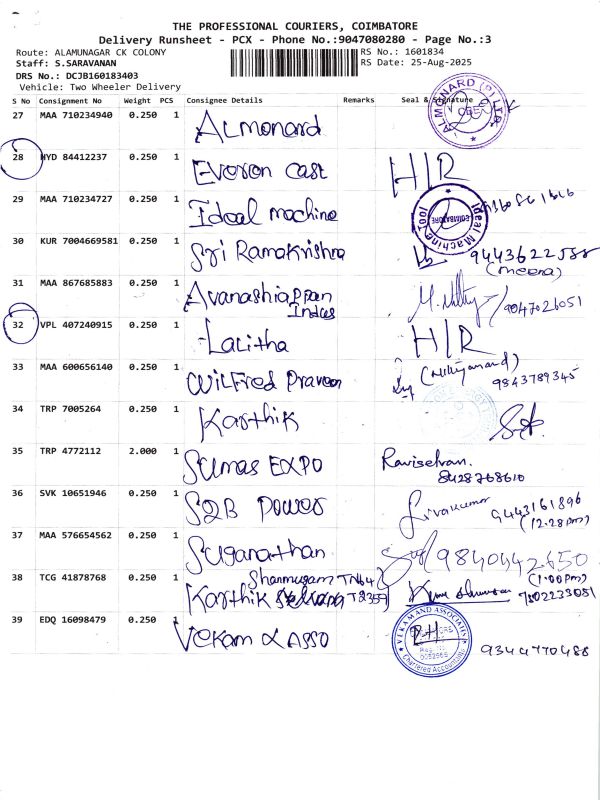 THE PROFESSIONAL COURIERS, COIMBATORE
Delivery Runsheet - PCX - Phone No.:9047080280 - Page No.:3
Route: ALAMUNAGAR CK COLONY
RS No.: 1601834
Staff: S.SARAVANAN
RS Date: 25-Aug-2025
DRS No.: DCJB160183403
Vehicle: Two Wheeler Delivery
S No Consignment No Weight PCS Consignee Details Remarks Seal & Signature
27 MAA 710234940 0.250 1 Almonard
28 HYD 84412237 0.250 1 Everon cast H/R
29 MAA 710234727 0.250 1 Ideal machine
30 KUR 7004669581 0.250 1 Sri Ramakrishna 9443622588
(meera)
31 MAA 867685883 0.250 1 Avanashiappan 9047026051
Indus
32 VPL 407240915 0.250 1 Lalitha H/R
33 MAA 600656140 0.250 1 Wilfred Praveen (Nithyanand)
9843789345
34 TRP 7005264 0.250 1 Karthik
35 TRP 4772112 2.000 1 Sumas EXPO Raviselvan.
8428768610
36 SVK 10651946 0.250 1 S2B Power Sivakumar 9443161896
(12:28pm)
37 MAA 576654562 0.250 1 Suganathan 9840442650
(1:00pm)
38 TCG 41878768 0.250 1 Shanmugam TN64
Karthik
39 EDQ 16098479 0.250 1 Vekam & Asso 9344770488